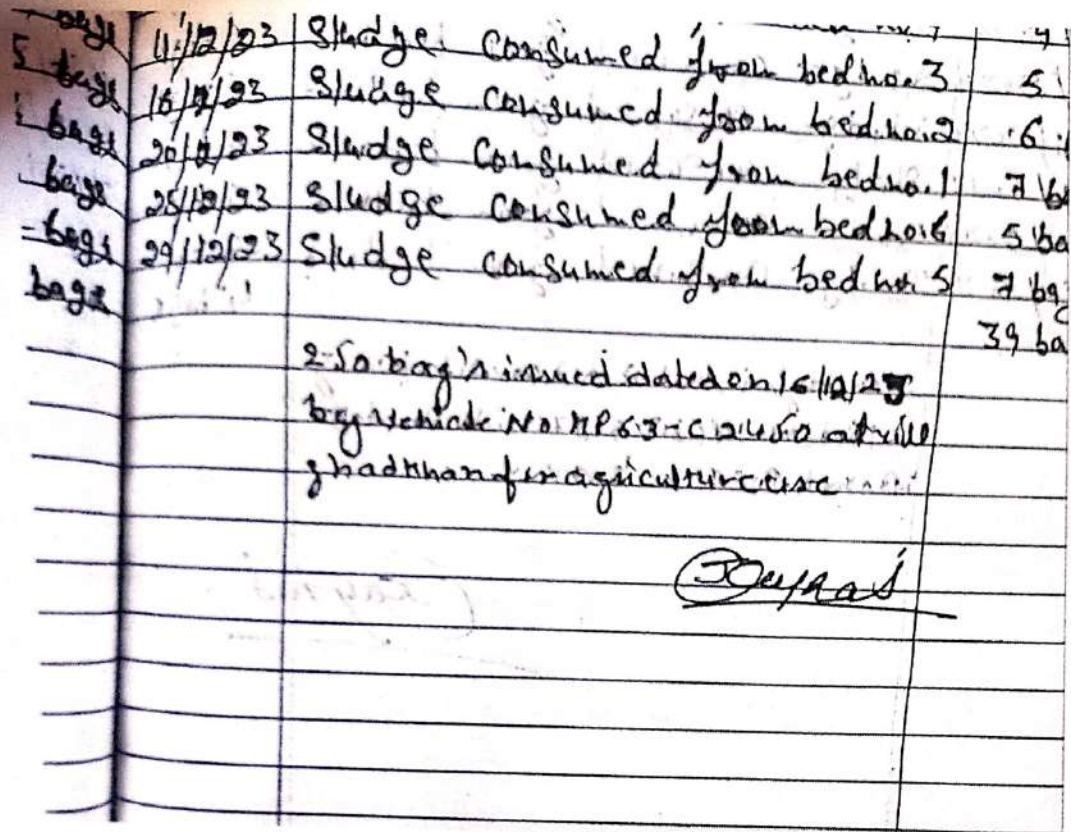 bags
5 bags 11/12/23 Sludge Consumed from bed no. 3 5
bags 16/12/23 Sludge Consumed from bed no. 2 6
bags 20/12/23 Sludge Consumed from bed no. 1 7 ba
bags 25/12/23 Sludge Consumed from bed no. 6 5 ba
bags 29/12/23 Sludge Consumed from bed no. 5 7 bag
bags 39 ba
250 bag's issued dated on 16/12/23
by vehicle No MP 63-C 2450 at vill
for agriculture use